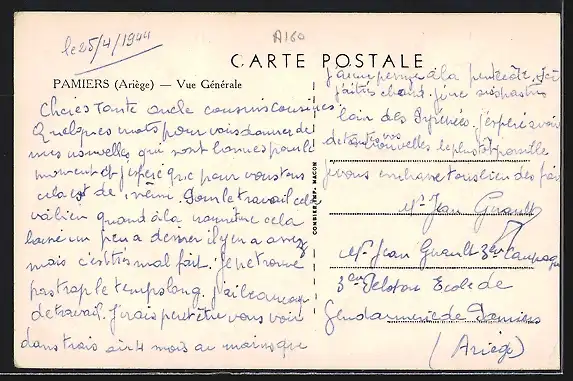 le 25/4/1944
A160
CARTE POSTALE
PAMIERS (Ariège) — Vue Générale
Chères Tante oncle cousins cousines
Quelques mots pour vous donner de
mes nouvelles qui sont bonnes pour le
moment et j'espère que pour vous tous
cela est de même. Pour le travail cela
va bien quand à la nourriture cela
laisse un peu a désirer il y en a assez
mais c'est très mal fait. Je ne trouve
pas trop le temps long. J'ai beaucoup
de travail. J'irais peut être vous voir
dans trois ou 4 mois au moins que
COMBIER IMP. MACON
j'aie une perme à la pentecôte. Ici
fait très chaud. Je ne suis pas très
loin des Pyrénées. J'espère avoir
de vos nouvelles le plus tôt possible
Je vous embrasse tous bien des fois
Mr Jean Gueault
Mr Jean Gueault 3em Compagnie
3em Peloton Ecole de
Gendarmerie de Pamiers
(Ariège)